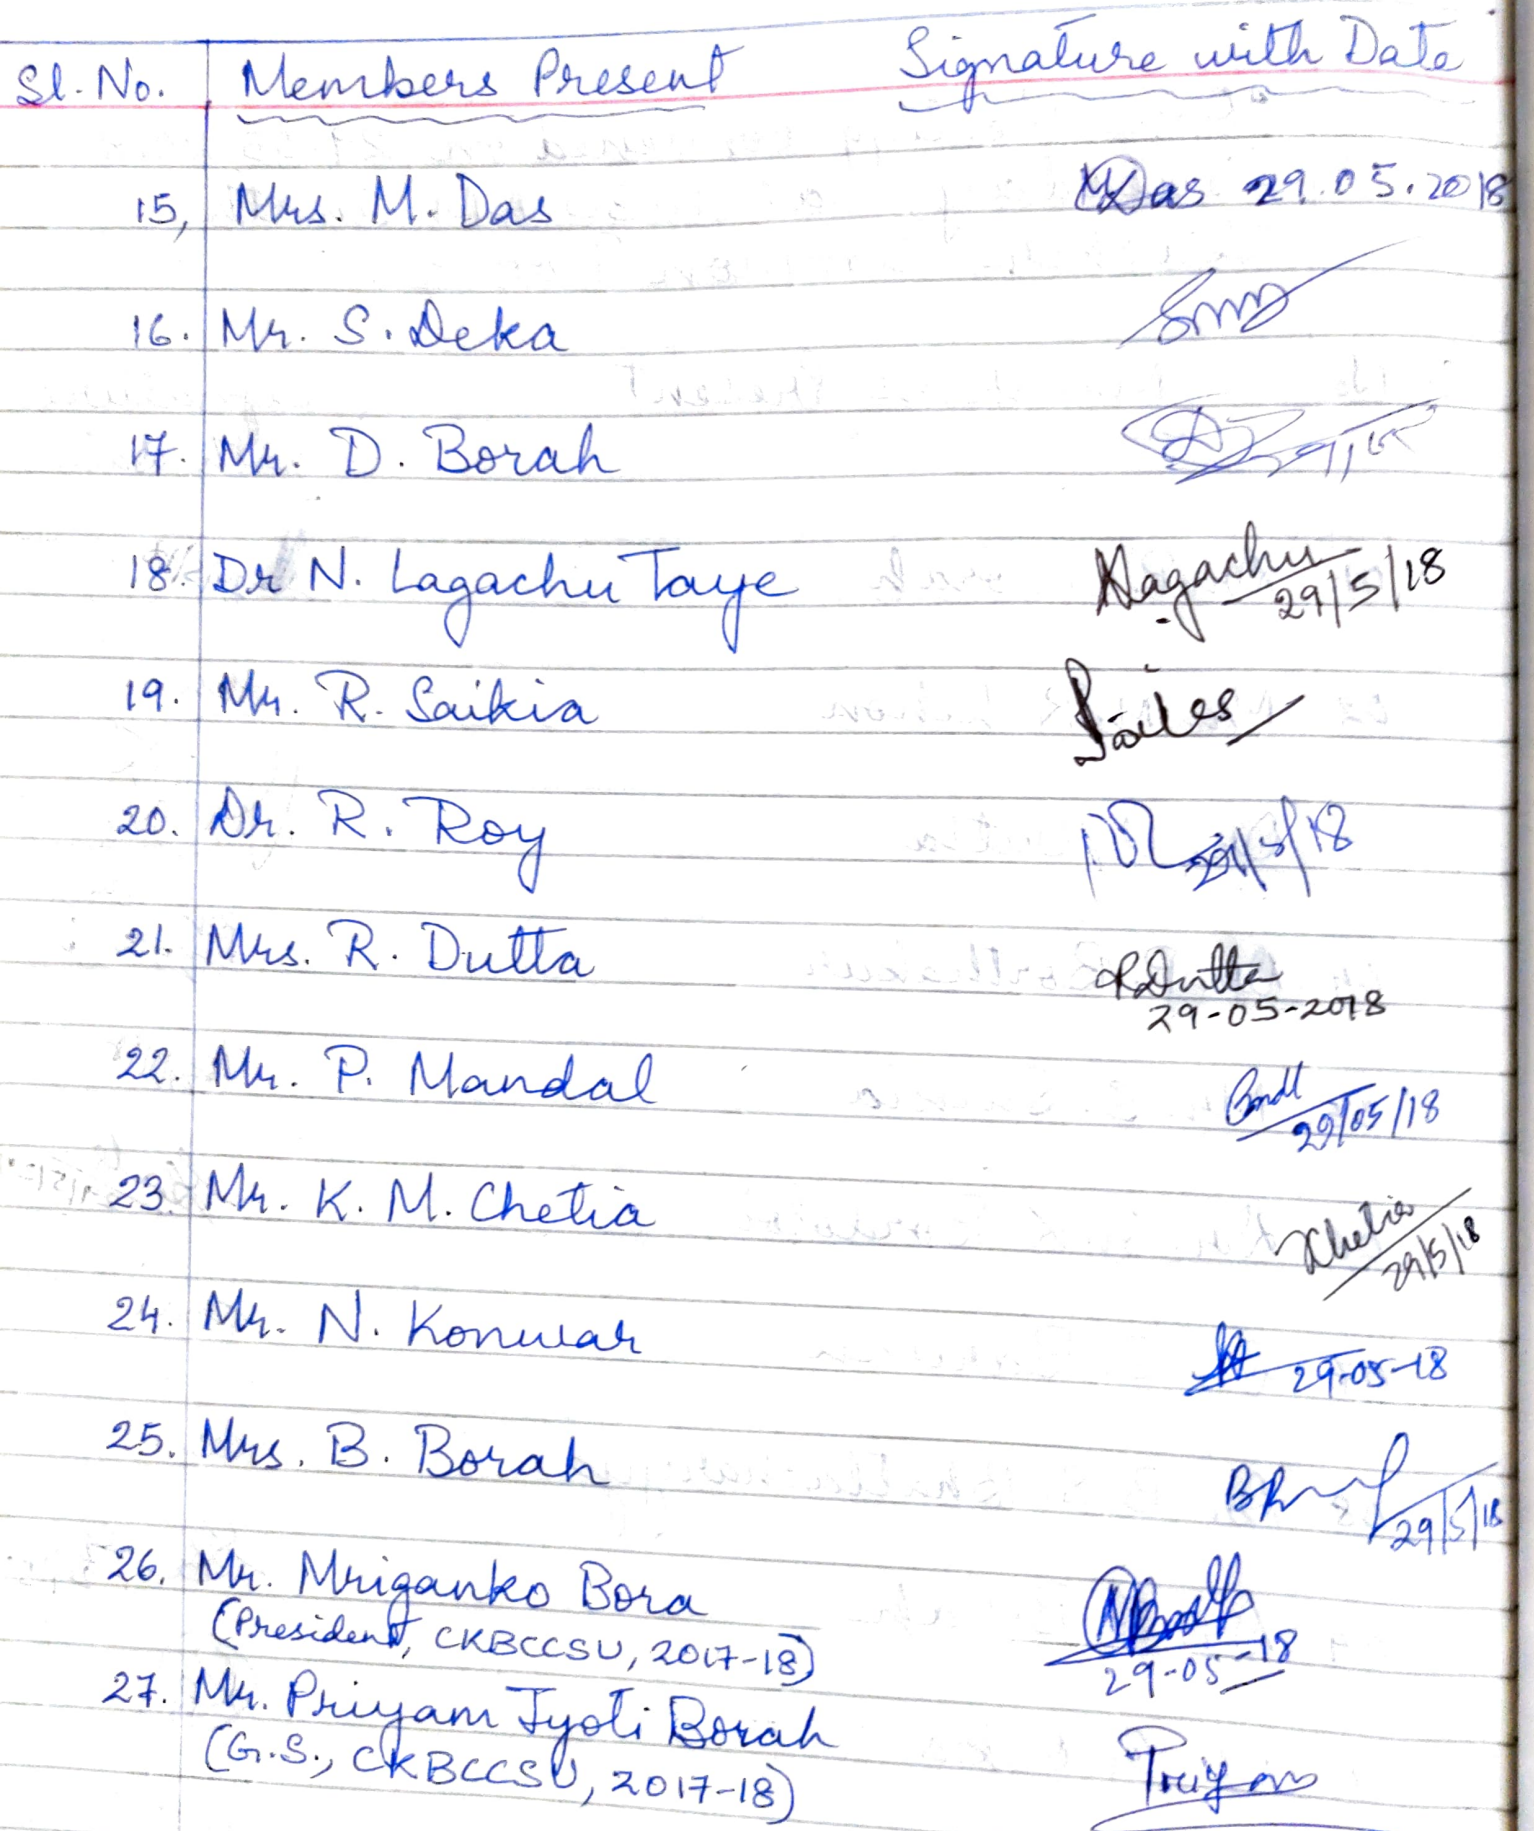 Sl. No. Members Present Signature with Date
15, Mrs. M. Das MDas 29.05.2018
16. Mr. S. Deka
17. Mr. D. Borah
18. Dr N. Lagachu Taye Lagachu
29/5/18
19. Mr. R. Saikia
20. Dr. R. Roy 29/5/18
21. Mrs. R. Dutta RDutta
29-05-2018
22. Mr. P. Mandal
29/05/18
23. Mr. K. M. Chetia Chetia
29/5/18
24. Mr. N. Konwar 29-05-18
25. Mrs. B. Borah
29/5/18
26. Mr. Mriganko Bora
(President, CKBCCSU, 2017-18) 29-05-18
27. Mr. Priyam Jyoti Borah Priyam
(G.S., CKBCCSU, 2017-18)